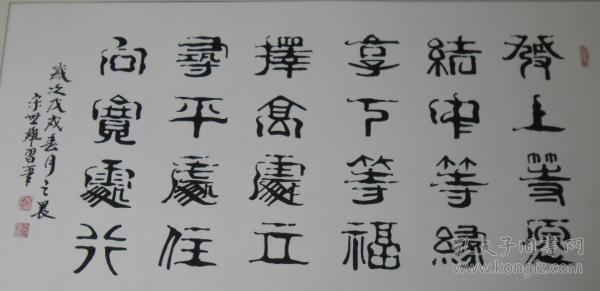 發上等愿
結中等緣
享下等福
擇高處立
尋平處住
向寬處行
歲次戊戌春月之晨
宗世雄習筆
孔夫子旧书网
www.kongfz.com